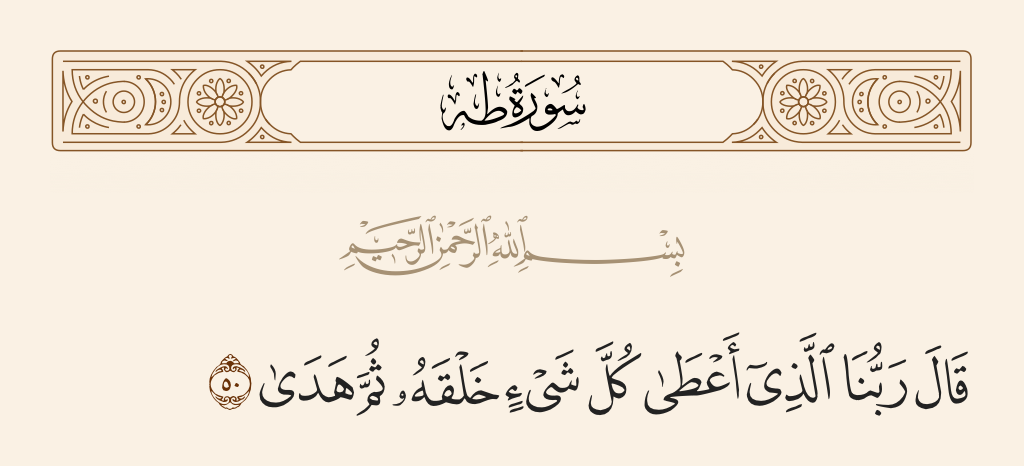 سُورَةُ طه
بِسْمِ ٱللَّهِ ٱلرَّحْمَٰنِ ٱلرَّحِيمِ
قَالَ رَبُّنَا ٱلَّذِىٓ أَعْطَىٰ كُلَّ شَىْءٍ خَلْقَهُۥ ثُمَّ هَدَىٰ ٥٠